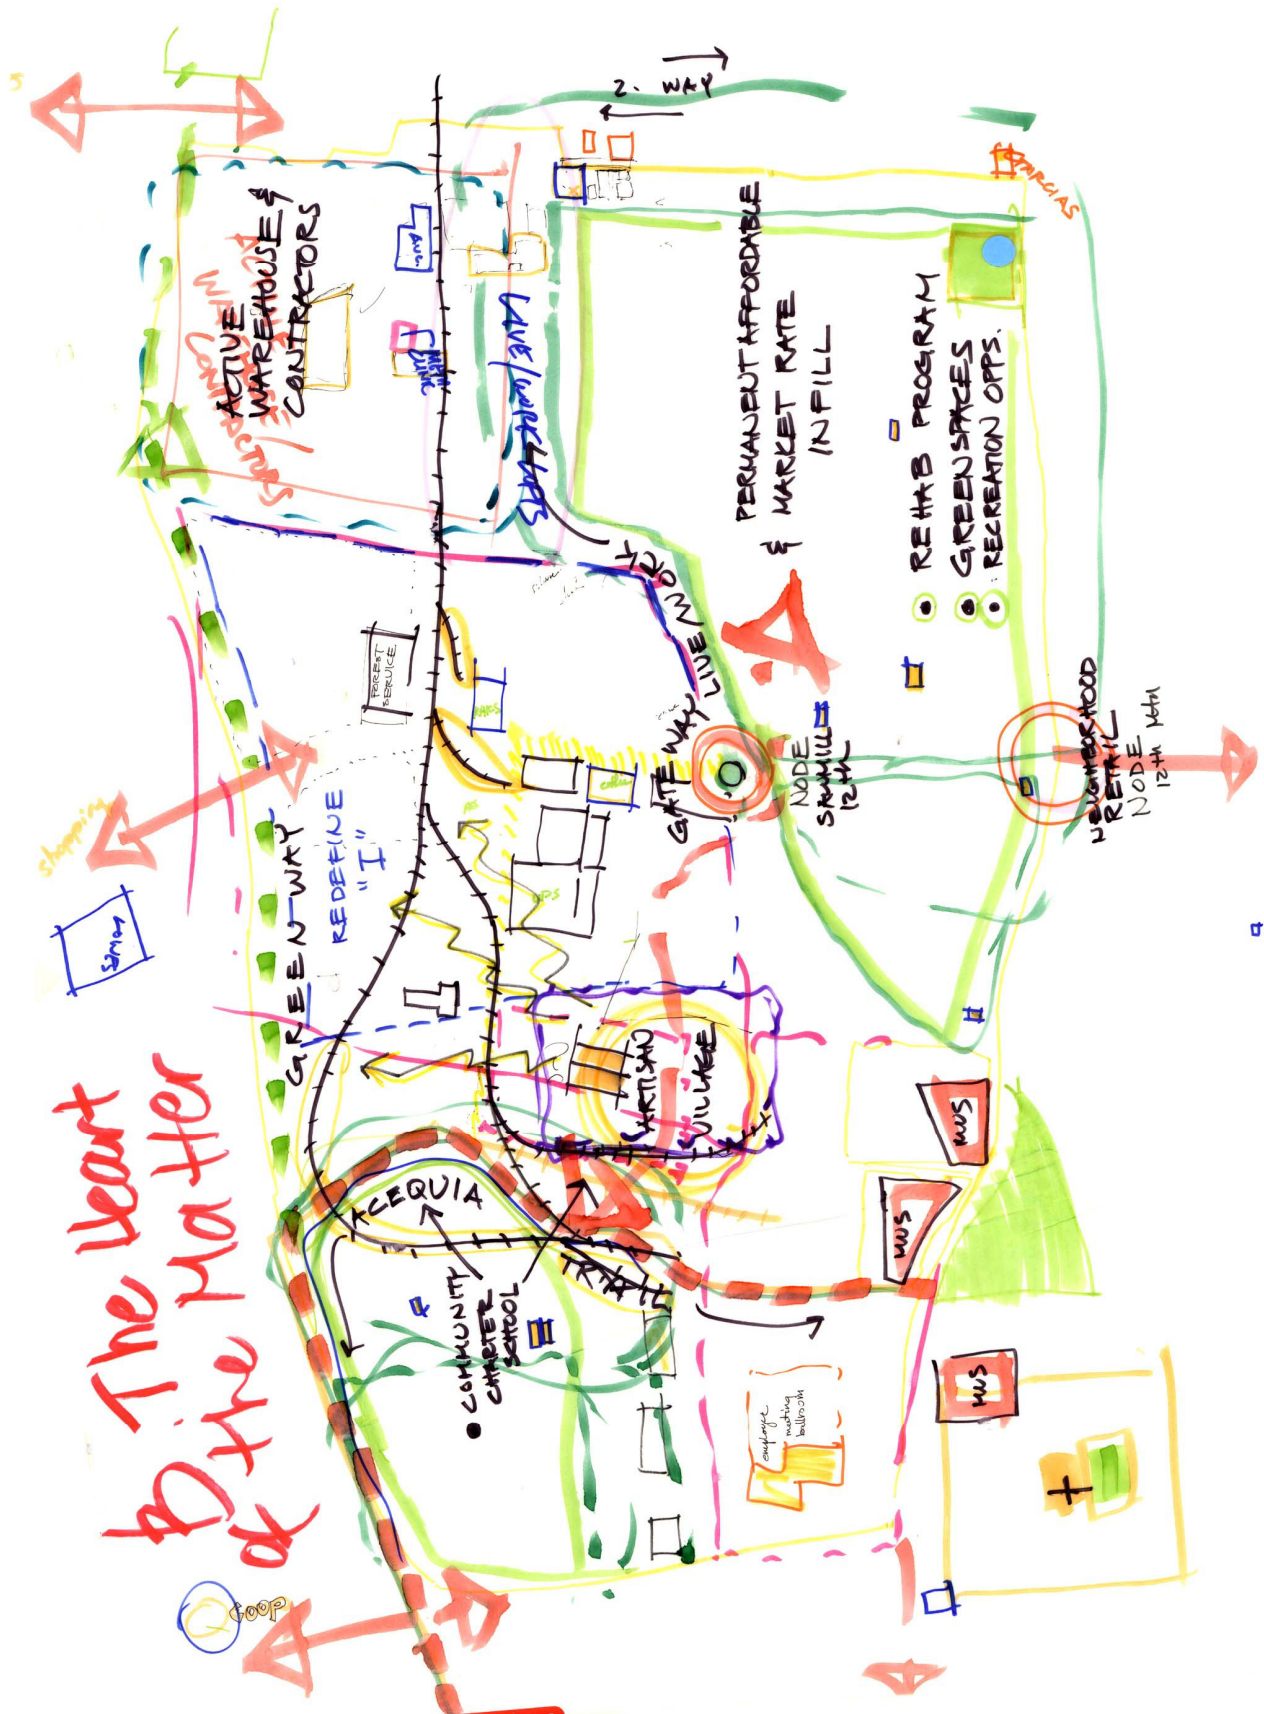 B The Heart
of the Matter
COOP
Lowes
shopping
S
GREEN-WAY
REDEFINE
"I"
ACTIVE
WAREHOUSE &
CONTRACTORS
WAREHOUSE /
CONTRACTORS
2. WAY
LIVE/WORK/LOFTS
FOREST
SERVICE
GATEWAY LIVE/WORK
PERMANENT AFFORDABLE
& MARKET RATE
INFILL
REHAB PROGRAM
GREENSPACES
RECREATION OPPS.
GARCIAS
NODE
SAWMILL
12TH
NEIGHBORHOOD
RETAIL
NODE
12TH
ARTISAN
VILLAGE
ACEQUIA
TRAIL
COMMUNITY
CHARTER
SCHOOL
employee
meeting
ballroom
MUS
MUS
MUS